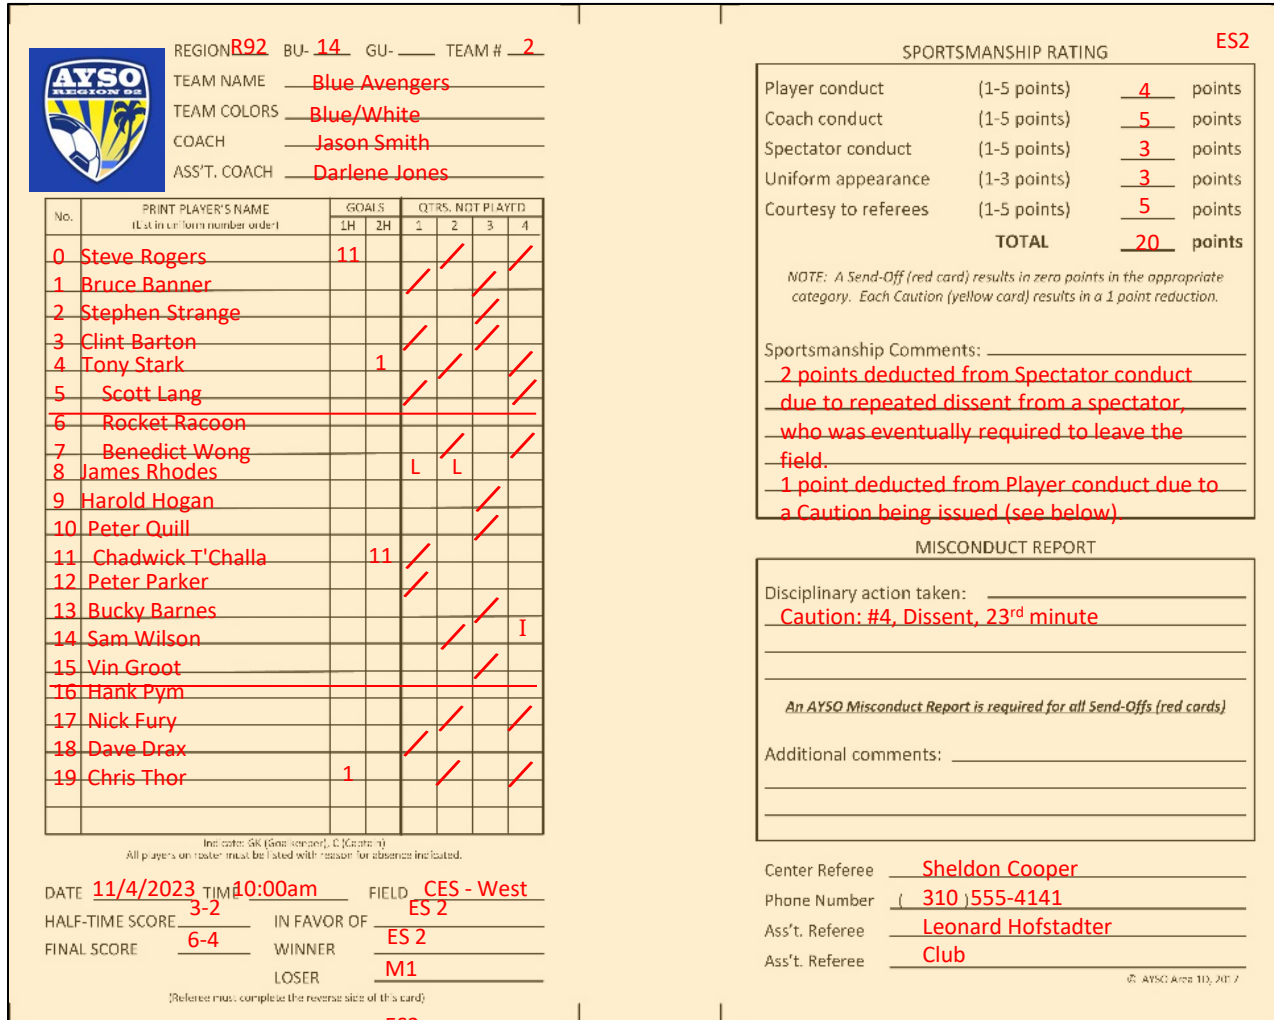 REGION R92 BU- 14 GU- ___ TEAM # 2
AYSO
REGION 92
TEAM NAME Blue Avengers
TEAM COLORS Blue/White
COACH Jason Smith
ASS'T. COACH Darlene Jones
No. PRINT PLAYER'S NAME GOALS QTRS. NOT PLAYED
(List in uniform number order) 1H 2H 1 2 3 4
0 Steve Rogers 11 / /
1 Bruce Banner / /
2 Stephen Strange /
3 Clint Barton / /
4 Tony Stark 1 / /
5 Scott Lang / /
6 Rocket Racoon
7 Benedict Wong / /
8 James Rhodes L L
9 Harold Hogan /
10 Peter Quill /
11 Chadwick T'Challa 11 /
12 Peter Parker /
13 Bucky Barnes /
14 Sam Wilson / I
15 Vin Groot /
16 Hank Pym
17 Nick Fury / /
18 Dave Drax /
19 Chris Thor 1 / /
Indicate: GK (Goalkeeper), C (Captain)
All players on roster must be listed with reason for absence indicated.
DATE 11/4/2023 TIME 10:00am FIELD CES - West
HALF-TIME SCORE 3-2 IN FAVOR OF ES 2
FINAL SCORE 6-4 WINNER ES 2
LOSER M1
(Referee must complete the reverse side of this card)
ES2
SPORTSMANSHIP RATING
Player conduct (1-5 points) 4 points
Coach conduct (1-5 points) 5 points
Spectator conduct (1-5 points) 3 points
Uniform appearance (1-3 points) 3 points
Courtesy to referees (1-5 points) 5 points
TOTAL 20 points
NOTE: A Send-Off (red card) results in zero points in the appropriate
category. Each Caution (yellow card) results in a 1 point reduction.
Sportsmanship Comments:
2 points deducted from Spectator conduct
due to repeated dissent from a spectator,
who was eventually required to leave the
field.
1 point deducted from Player conduct due to
a Caution being issued (see below).
MISCONDUCT REPORT
Disciplinary action taken:
Caution: #4, Dissent, 23rd minute
An AYSO Misconduct Report is required for all Send-Offs (red cards)
Additional comments:
Center Referee Sheldon Cooper
Phone Number ( 310 ) 555-4141
Ass't. Referee Leonard Hofstadter
Ass't. Referee Club
© AYSO Area 1D, 2017